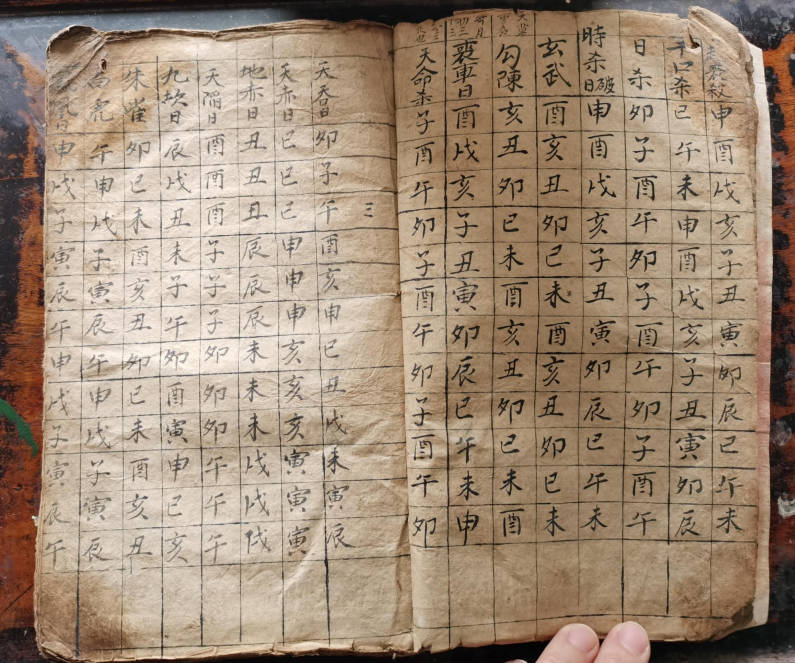 喪殺申酉戌亥子丑寅卯辰巳午未
口杀巳午未申酉戌亥子丑寅卯辰
日杀卯子酉午卯子酉午卯子酉午
時杀破日申酉戌亥子丑寅卯辰巳午未
玄武酉亥丑卯巳未酉亥丑卯巳未
勾陳亥丑卯巳未酉亥丑卯巳未酉
喪車日酉戌亥子丑寅卯辰巳午未申
天命杀子酉午卯子酉午卯子酉午卯
三
天吞日卯子午酉亥申巳丑戌未寅辰
天赤日巳巳巳申申申亥亥亥寅寅寅
地赤日丑丑丑辰辰辰未未未戌戌戌
天陷日酉酉酉子子子卯卯卯午午午
九坎日辰戌丑未子午卯酉寅申巳亥
朱雀卯巳未酉亥丑卯巳未酉亥丑
白虎午申戌子寅辰午申戌子寅辰
申戌子寅辰午申戌子寅辰午